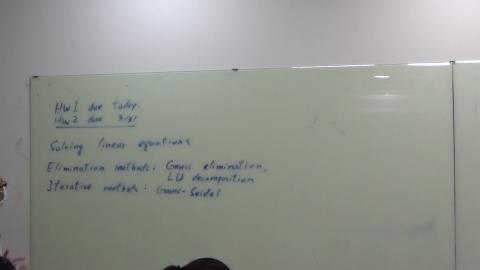 HW1 due today.
HW2 due
Solving linear equations
Elimination methods: Gauss elimination,
LU decomposition
Iterative methods: Gauss-Seidel